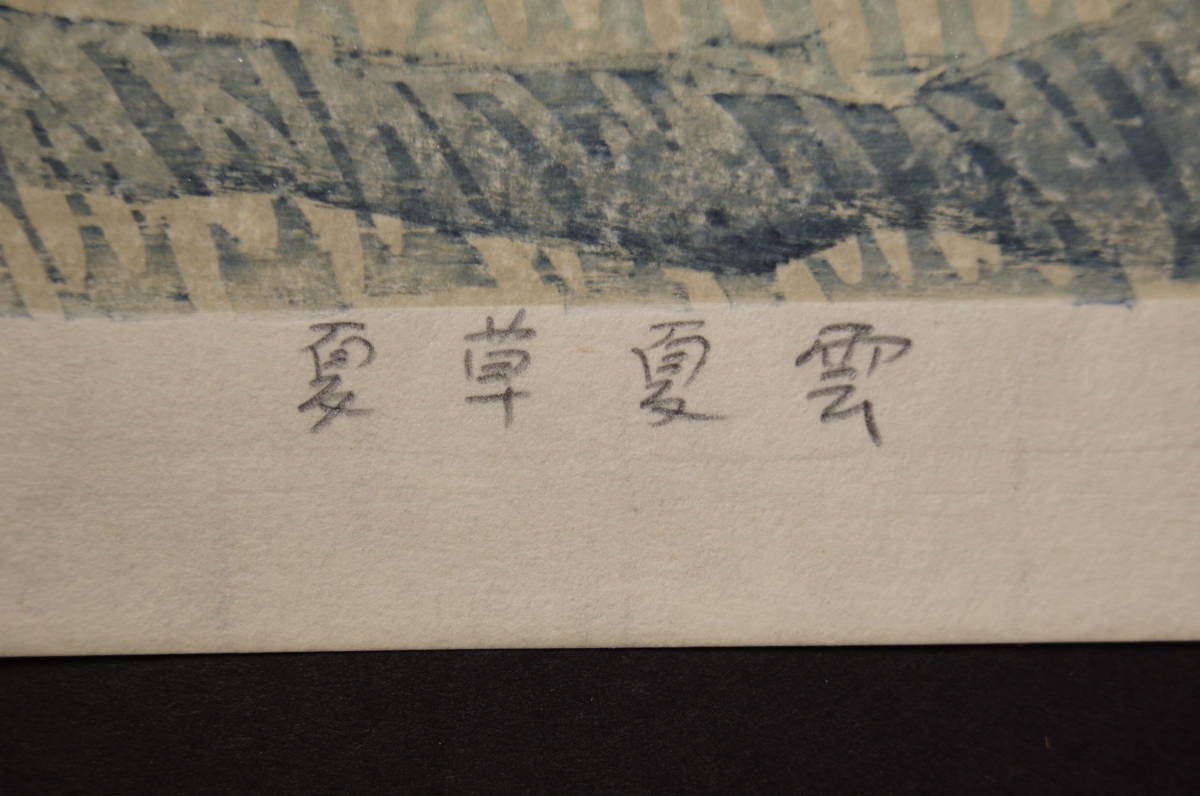 夏草夏雲